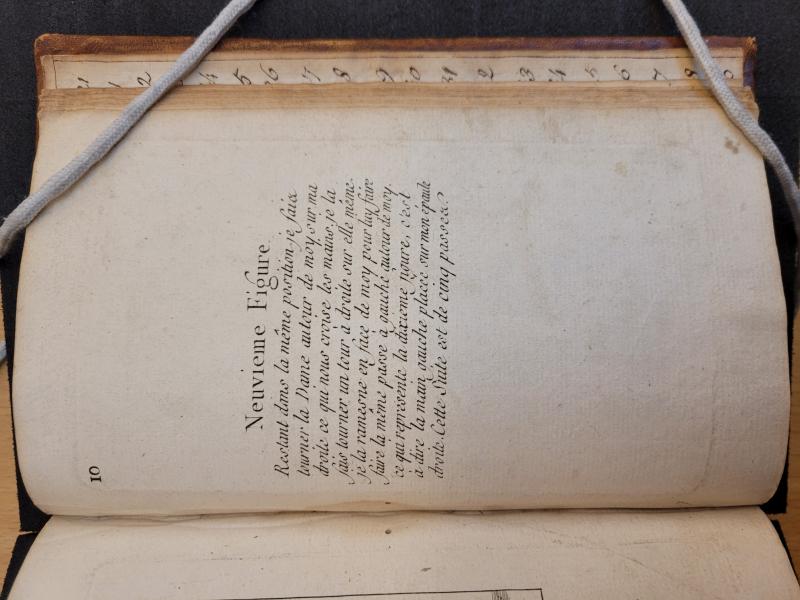 10
Neuvieme Figure
Restant dans la même position, je fais
tourner la Dame autour de moy, sur ma
droite ce qui nous croise les mains, je la
fais tourner un tour à droite sur elle même.
je la ramesne en face de moy pour luy faire
faire la même passe à gauche autour de moy,
ce qui represente la dixieme figure, c'est
à dire la main gauche placée sur mon épaule
droite. Cette Suite est de cinq passes.